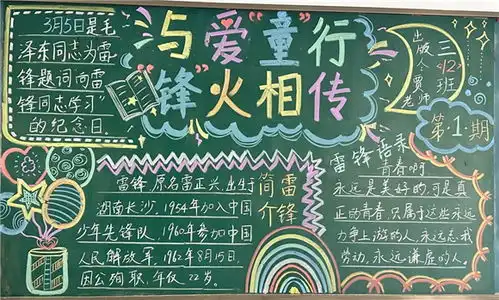 3月5日是毛
泽东同志为雷
锋题词“向雷
锋同志学习”
的纪念日.
与爱“童”行
“锋”火相传
出版人
贾老师
三
<12>
班
第1期
雷锋,原名雷正兴,出生于
湖南长沙,1954年加入中国
少年先锋队,1960年参加中国
人民解放军,1962年8月15日,
因公殉职,年仅22岁。
雷锋
简介
雷锋语录
青春啊
永远是美好的,可是真
正的青春,只属于这些永远
力争上游的人,永远忘我
劳动,永远谦虚的人。